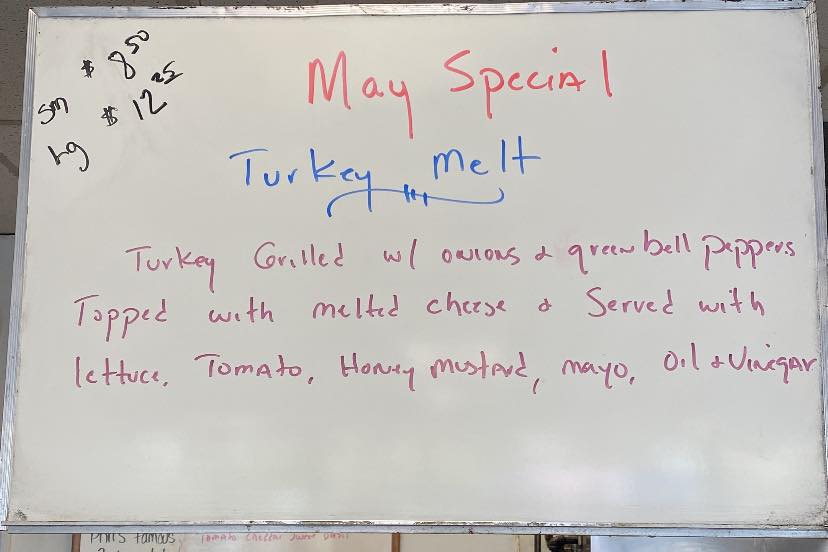 sm $ 8 50
Lg $ 12 25
May Special
Turkey Melt
Turkey Grilled w/ onions & green bell peppers
Topped with melted cheese & Served with
lettuce, Tomato, Honey mustard, mayo, Oil & Vinegar
Phil's famous